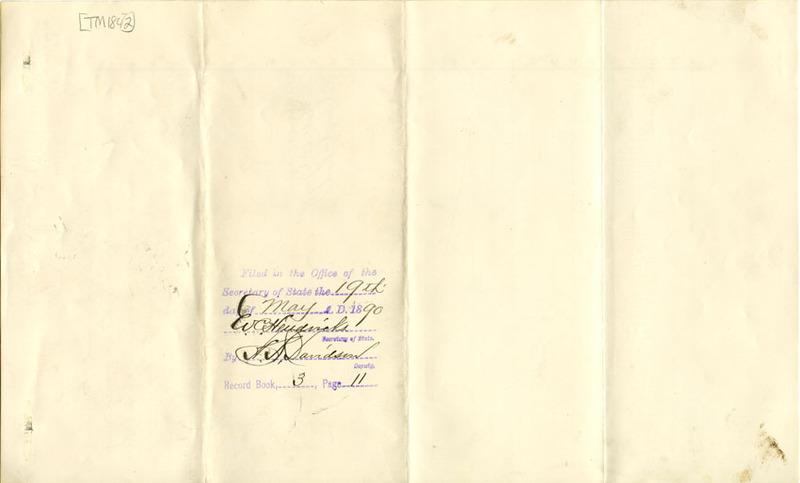 [TM1842]
Filed in the Office of the
Secretary of State the 19th
day of May A.D. 1890
E. C. Hendricks
Secretary of State.
By Davidson
Deputy.
Record Book, 3, Page 11